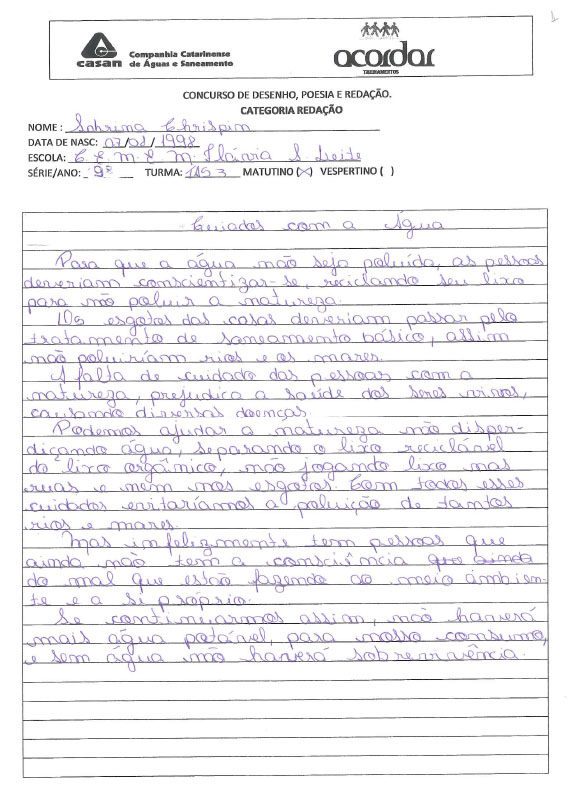 1
casan Companhia Catarinense
de Águas e Saneamento
acordar
TREINAMENTOS
CONCURSO DE DESENHO, POESIA E REDAÇÃO.
CATEGORIA REDAÇÃO
NOME : Sabrina Chrispim
DATA DE NASC: 07/02/1998
ESCOLA: C. E. M. E M. Flávia S Leite
SÉRIE/ANO: 9º TURMA: 1153 MATUTINO (X) VESPERTINO ( )
Cuidados com a Água
Para que a água não seja poluída, as pessoas
deveriam conscientizar-se, reciclando seu lixo
para não poluir a natureza.
Os esgotos das casas deveriam passar pelo
tratamento de saneamento básico, assim
não poluiriam rios e os mares.
A falta de cuidado das pessoas com a
natureza, prejudica a saúde dos seres vivos,
causando diversas doenças.
Podemos ajudar a natureza não disper-
diçando água, separando o lixo reciclável
do lixo orgânico, não jogando lixo nas
ruas e nem nos esgotos. Com todos esses
cuidados evitaríamos a poluição de tantos
rios e mares.
Mas infelizmente tem pessoas que
ainda não tem a consciência que ainda
do mal que estão fazendo ao meio âmbien-
te e a si próprio.
Se continuarmos assim, não haverá
mais água potável, para nosso consumo,
e sem água não haverá sobrevivência.